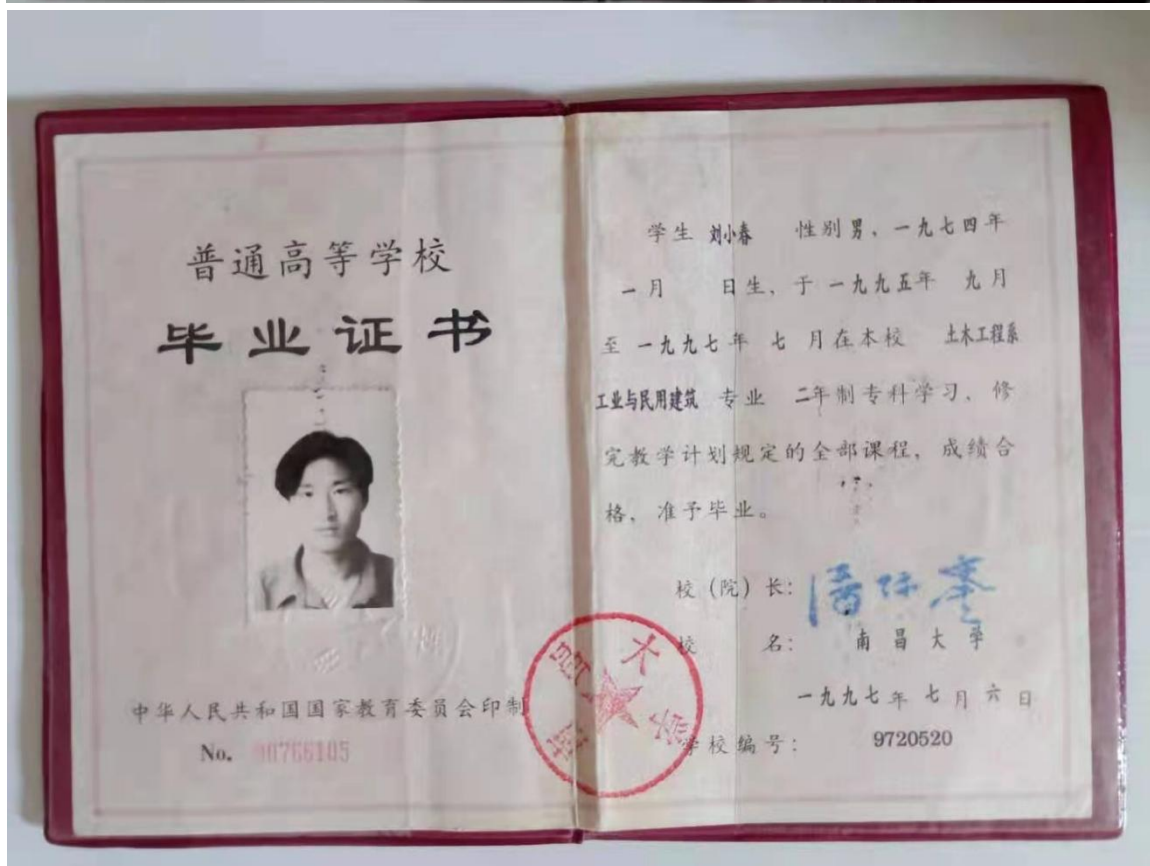 普通高等学校
毕业证书
中华人民共和国国家教育委员会印制
No. 90766105
学生 刘小春 性别 男，一九七四年
一月 日生，于 一九九五年 九月
至 一九九七年 七 月在本校 土木工程系
工业与民用建筑 专业 二年制专科学习，修
完教学计划规定的全部课程，成绩合
格，准予毕业。
校（院）长：
校 名： 南昌大学
一九九七年 七月 六日
学校编号： 9720520
南昌大学